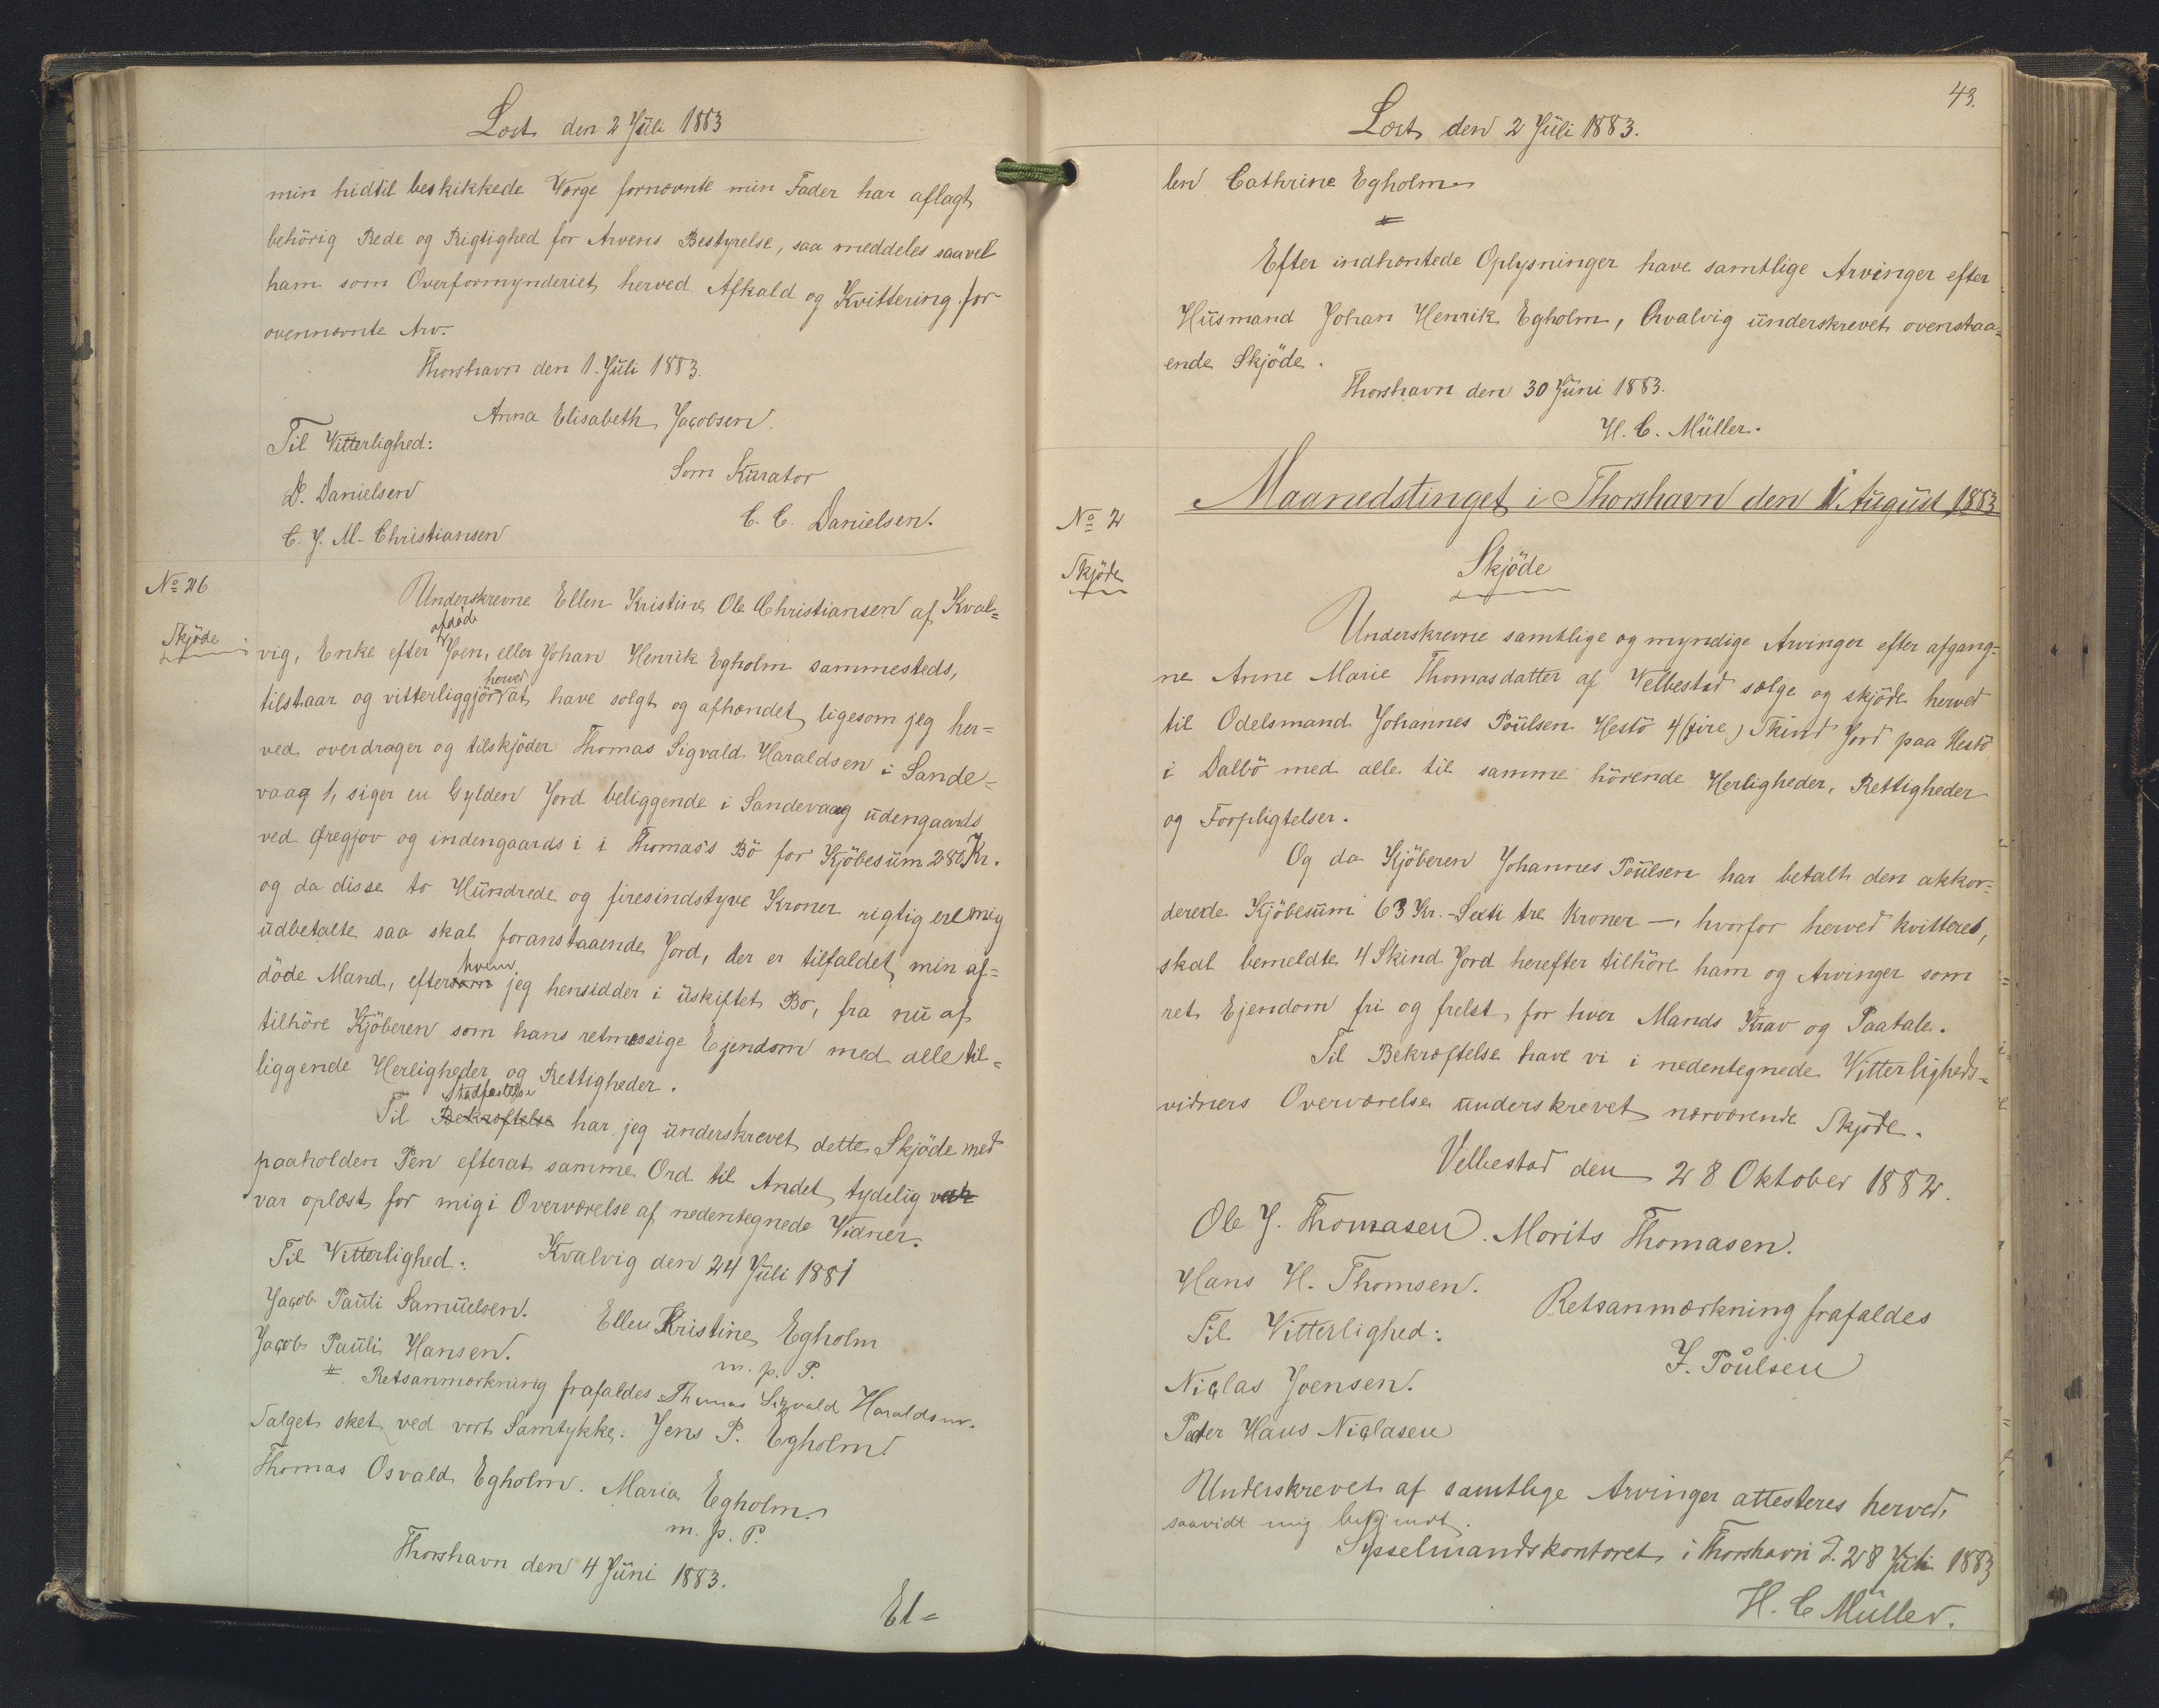 Læst den 2 Juli 1883
min hidtil beskikkede Værge fornævnte min Fader har aflagt
behörig Rede og Rigtighed for Arvens Bestyrelse, saa meddeles saavel
ham som Overformynderiet herved Afkald og Kvittering for
ovennævnte Arv.
Thorshavn den 1. Juli 1883.
Anna Elisabeth Jacobsen.
Til Vitterlighed:
Som Kurator
D. Danielsen
C. C. Danielsen.
C. J. M. Christiansen
No 26
Skjöde
Underskrevne Ellen Kristine Ole Christiansen af Kval=
vig, Enke efter afdöde Joen, eller Johan Henrik Egholm sammesteds,
tilstaar og vitterliggjör herved at have solgt og afhændet ligesom jeg her=
ved overdrager og tilskjöder Thomas Sigvald Haraldsen i Sande=
vaag 1, siger en Gylden Jord beliggende i Sandevaag udengaards
ved Øregjov og indengaards i i Thomas's Bö for Kjöbesum 280 Kr.
og da disse to Hundrede og firesindstyve Kroner rigtig ere mig
udbetalte saa skal foranstaaende Jord, der er tilfaldet min af=
döde Mand, efter hvem jeg hensidder i uskiftet Bo, fra nu af
tilhöre Kjöberen som hans retmæssige Ejendom med alle til=
liggende Herligheder og Rettigheder.
Til Bekræftelse Stadfæstelse har jeg underskrevet dette Skjöde med
paaholden Pen efterat samme Ord til Andet tydelig var
var oplæst for mig i Overværelse af nedentegnede Vidner.
Til Vitterlighed: Kvalvig den 24 Juli 1881
Jacob Pauli Samuelsen. Ellen Kristine Egholm
Jacob Pauli Hansen. m. p. P.
Retsanmærkning frafaldes Thomas Sigvald Haraldsen.
Salget sket ved vort Samtykke: Jens P. Egholm
Thomas Osvald Egholm. Maria Egholm
m. p. P.
Thorshavn den 4 Juni 1883.
El=
43.
Læst den 2 Juli 1883.
len Cathrine Egholm
Efter indhæntede Oplysninger have samtlige Arvinger efter
Husmand Johan Henrik Egholm, Qvalvig underskrevet ovenstaa=
ende Skjöde.
Thorshavn den 30 Juni 1883.
H. C. Müller.
Maanedstinget i Thorshavn den 1 August 1883
No 2
Skjöde
Skjöde
Underskrevne samtlige og myndige Arvinger efter afgang=
ne Anne Marie Thomasdatter af Velbestad sælge og skjöde herved
til Odelsmand Johannes Poulsen Hestö 4 (fire) Skind Jord paa Hestö
i Dalbö med alle til samme hörende Herligheder, Rettigheder
og Forpligtelser.
Og da Kjöberen Johannes Poulsen har betalt den akkor=
derede Kjöbesum 63 Kr. - Sexti tre Kroner -, hvorfor herved kvitteres,
skal bemeldte 4 Skind Jord herefter tilhöre ham og Arvinger som
ret Ejendom fri og frelst for hver Mands Krav og Paatale.
Til Bekræftelse have vi i nedentegnede Vitterligheds=
vidners Overværelse underskrevet nærværende Skjöde.
Velbestad den 28 Oktober 1882.
Ole J. Thomasen. Morits Thomasen.
Hans H. Thomsen.
Retsanmærkning frafaldes
Til Vitterlighed:
J. Poulsen
Niclas Joensen.
Peder Hans Niclasen
Underskrevet af samtlige Arvinger attesteres herved,
saavidt mig bekjendt.
Sysselmandskontoret i Thorshavn d. 28 Juli 1883
H. C Müller.